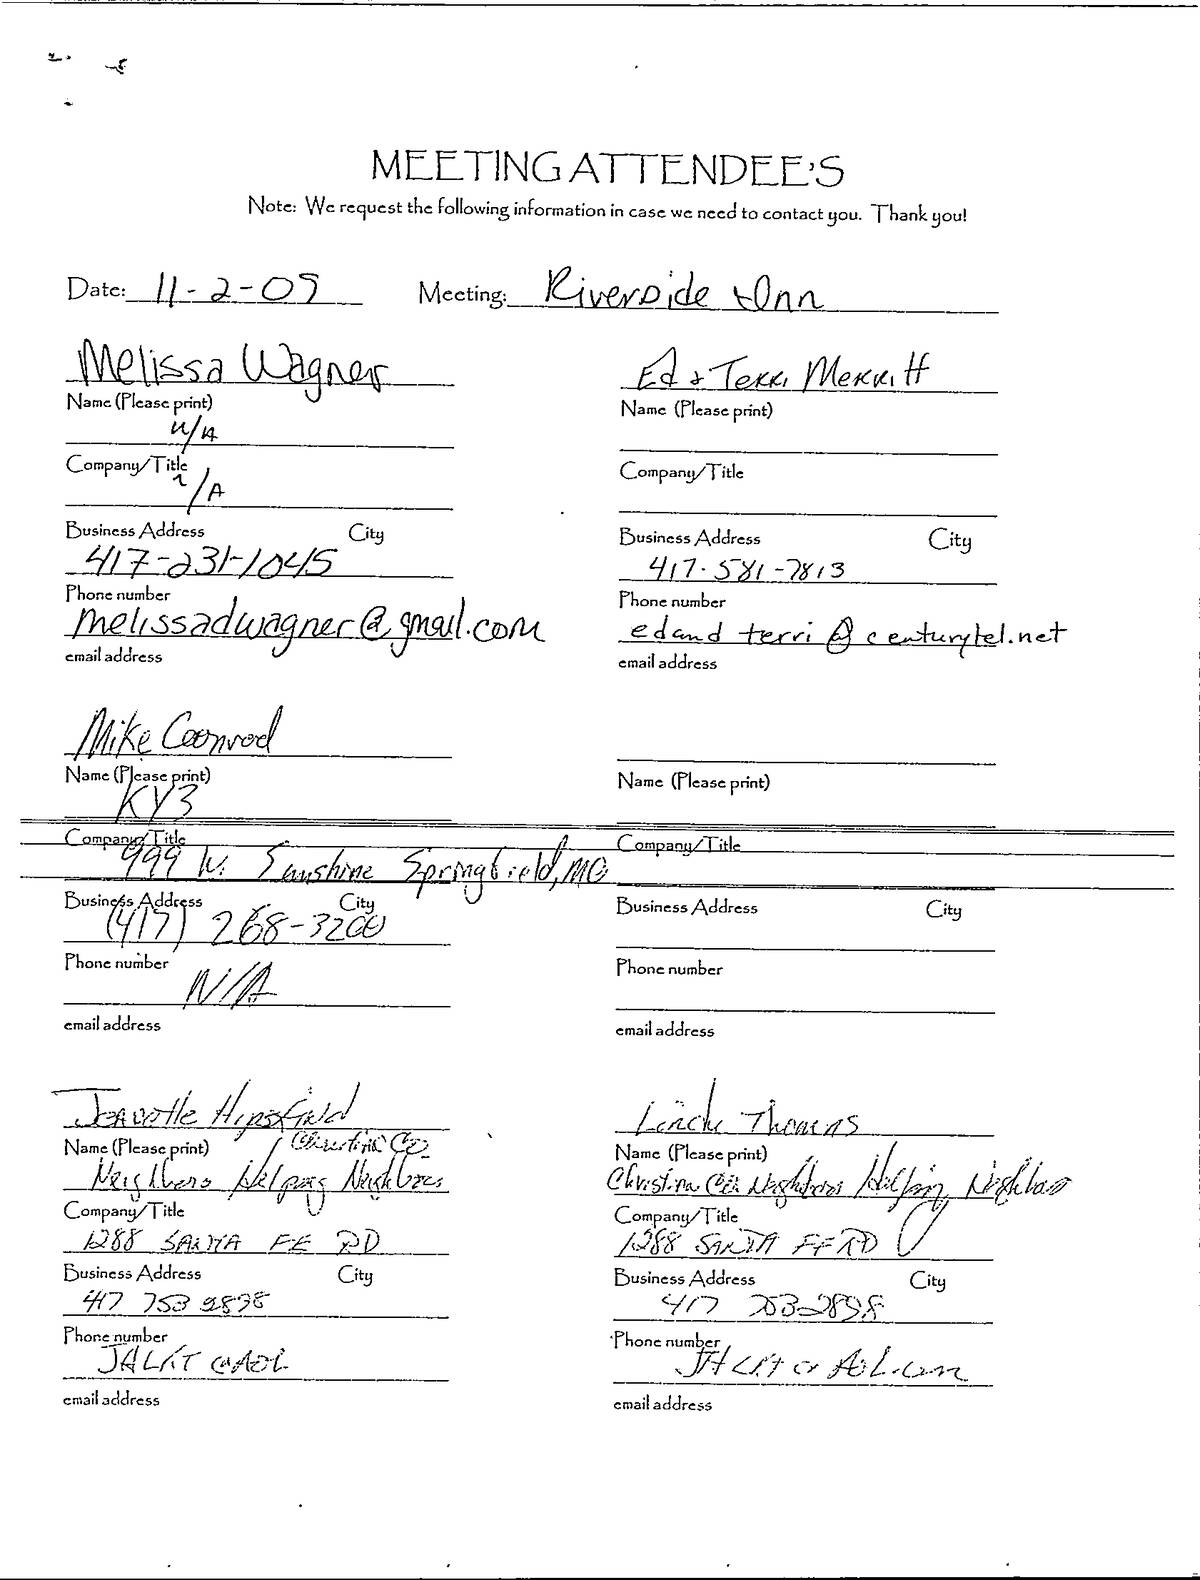 MEETING ATTENDEE'S
Note: We request the following information in case we need to contact you. Thank you!
Date: 11-2-09 Meeting: Riverside Inn
Melissa Wagner
Name (Please print)
N/A
Company/Title
N/A
Business Address City
417-231-1045
Phone number
melissadwagner@gmail.com
email address
Ed & Terri Merritt
Name (Please print)
Company/Title
Business Address City
417-581-7813
Phone number
edand terri@centurytel.net
email address
Mike Coonrod
Name (Please print)
KY3
Company/Title
999 W. Sunshine Springfield, MO
Business Address City
(417) 268-3200
Phone number
N/A
email address
Name (Please print)
Company/Title
Business Address City
Phone number
email address
Name (Please print)
Neighbors Helping Neighbors
Company/Title
1288 SANTA FE RD
Business Address City
417 753 2898
Phone number
@AOL
email address
Linda Thomas
Name (Please print)
Christian Co. Neighbors Helping Neighbors
Company/Title
1288 SANTA FE RD
Business Address City
417 753-2898
Phone number
AOL.com
email address